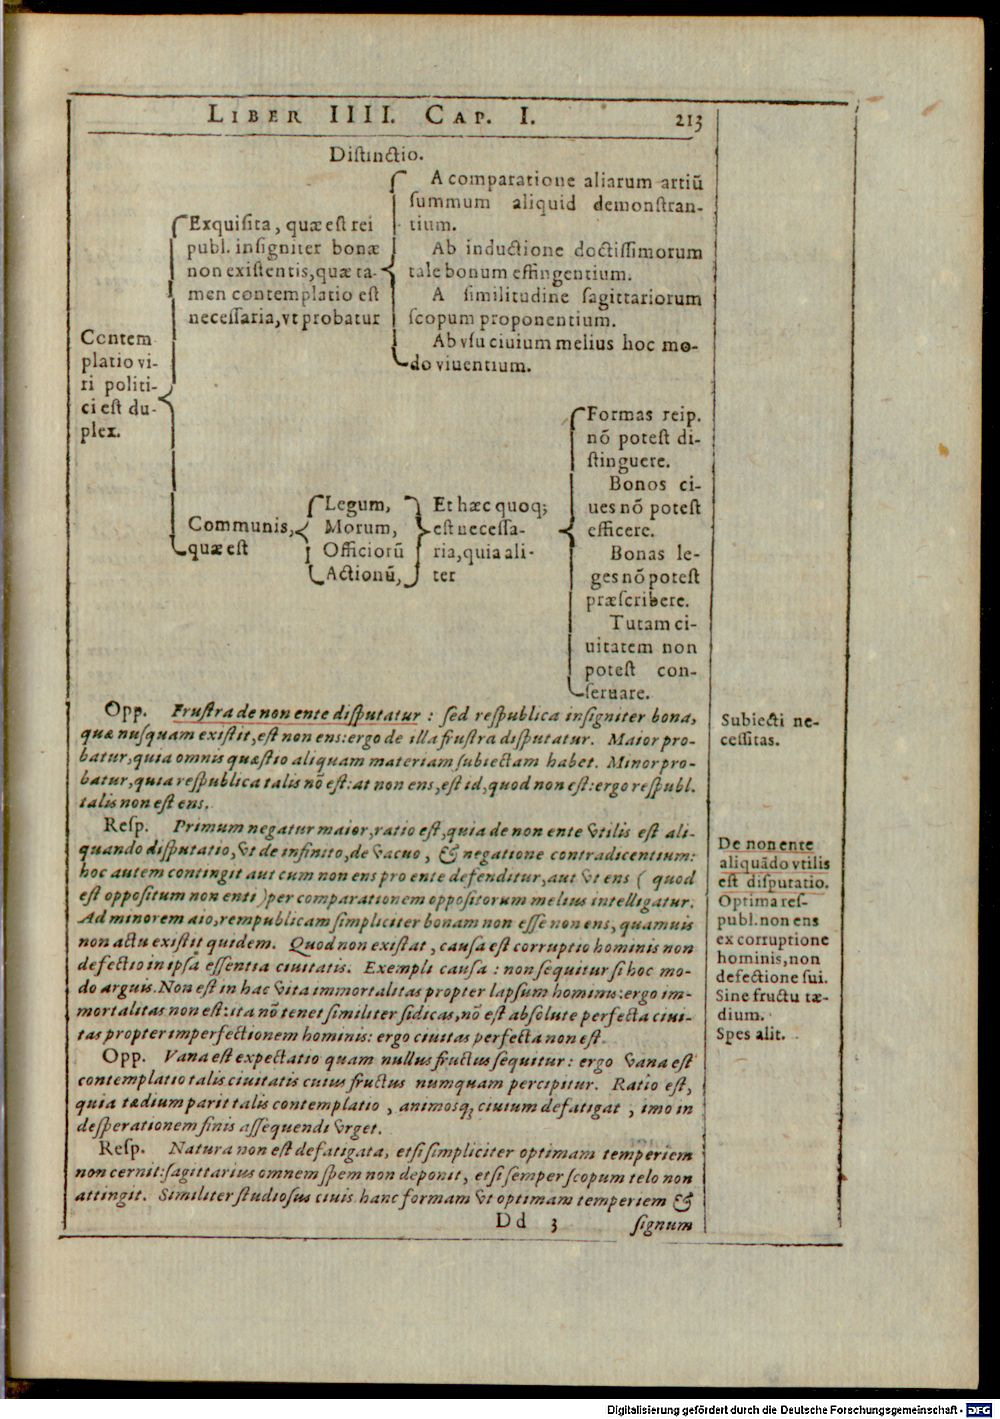 LIBER IIII. CAP. I. 213
Distinctio.
Contem
platio vi-
ri politi-
ci est du-
plex.
Exquisita, quæ est rei
publ. insigniter bonæ
non existentis, quæ ta-
men contemplatio est
necessaria, vt probatur
A comparatione aliarum artiū
summum aliquid demonstran-
tium.
Ab inductione doctissimorum
tale bonum effingentium.
A similitudine sagittariorum
scopum proponentium.
Ab vsu ciuium melius hoc mo-
do viuentium.
Communis,
quæ est
Legum,
Morum,
Officiorū
Actionū,
Et hæc quoq;
est necessa-
ria, quia ali-
ter
Formas reip.
nō potest di-
stinguere.
Bonos ci-
ues nō potest
efficere.
Bonas le-
ges nō potest
præscribere.
Tutam ci-
uitatem non
potest con-
seruare.
Opp. Frustra de non ente disputatur : sed respublica insigniter bona,
quæ nusquam existit, est non ens: ergo de illa frustra disputatur. Maior pro-
batur, quia omnis quæstio aliquam materiam subiectam habet. Minor pro-
batur, quia respublica talis nō est: at non ens, est id, quod non est: ergo respubl.
talis non est ens.
Resp. Primum negatur maior, ratio est, quia de non ente vtilis est ali-
quando disputatio, vt de infinito, de vacuo, & negatione contradicentium:
hoc autem contingit aut cum non ens pro ente defenditur, aut vt ens ( quod
est oppositum non enti ) per comparationem oppositorum melius intelligatur.
Ad minorem aio, rempublicam simpliciter bonam non esse non ens, quamuis
non actu existit quidem. Quod non existat, causa est corruptio hominis non
defectio in ipsa essentia ciuitatis. Exempli causa : non sequitur si hoc mo-
do arguis. Non est in hac vita immortalitas propter lapsum hominis: ergo im-
mortalitas non est: ita nō tenet similiter si dicas, nō est absolute perfecta ciui-
tas propter imperfectionem hominis: ergo ciuitas perfecta non est.
Opp. Vana est expectatio quam nullus fructus sequitur : ergo vana est
contemplatio talis ciuitatis cuius fructus numquam percipitur. Ratio est,
quia tædium parit talis contemplatio , animosq; ciuium defatigat , imo in
desperationem finis assequendi vrget.
Resp. Natura non est defatigata, etsi simpliciter optimam temperiem
non cernit: sagittarius omnem spem non deponit, etsi semper scopum telo non
attingit. Similiter studiosus ciuis hanc formam vt optimam temperiem &
Dd 3 signum
Subiecti ne-
cessitas.
De non ente
aliquādo vtilis
est disputatio.
Optima res-
publ. non ens
ex corruptione
hominis, non
defectione sui.
Sine fructu tæ-
dium.
Spes alit.
Digitalisierung gefördert durch die Deutsche Forschungsgemeinschaft - DFG